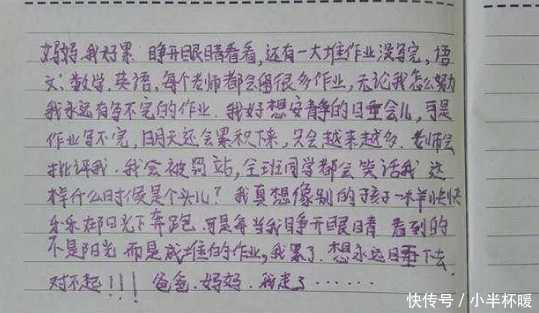 妈妈,我好累 睁开眼睛看看,还有一大堆作业没写完,语
文、数学、英语,每个老师都会留很多作业,无论我怎么努
我永远有写不完的作业.我好想安静的睡会儿,可是
作业写不完,明天还会累积下来,只会越来越多.老师会
批评我.我会被罚站,全班同学都会笑话我 这
样什么时候是个头儿?我真想像别的孩子一样快快
乐乐在阳光下奔跑.可是每当我睁开眼睛 看到的
不是阳光 而是成堆的作业,我累了.想永远睡下去.
对不起!!!爸爸.妈妈.我走了······
快传号/小半杯暖